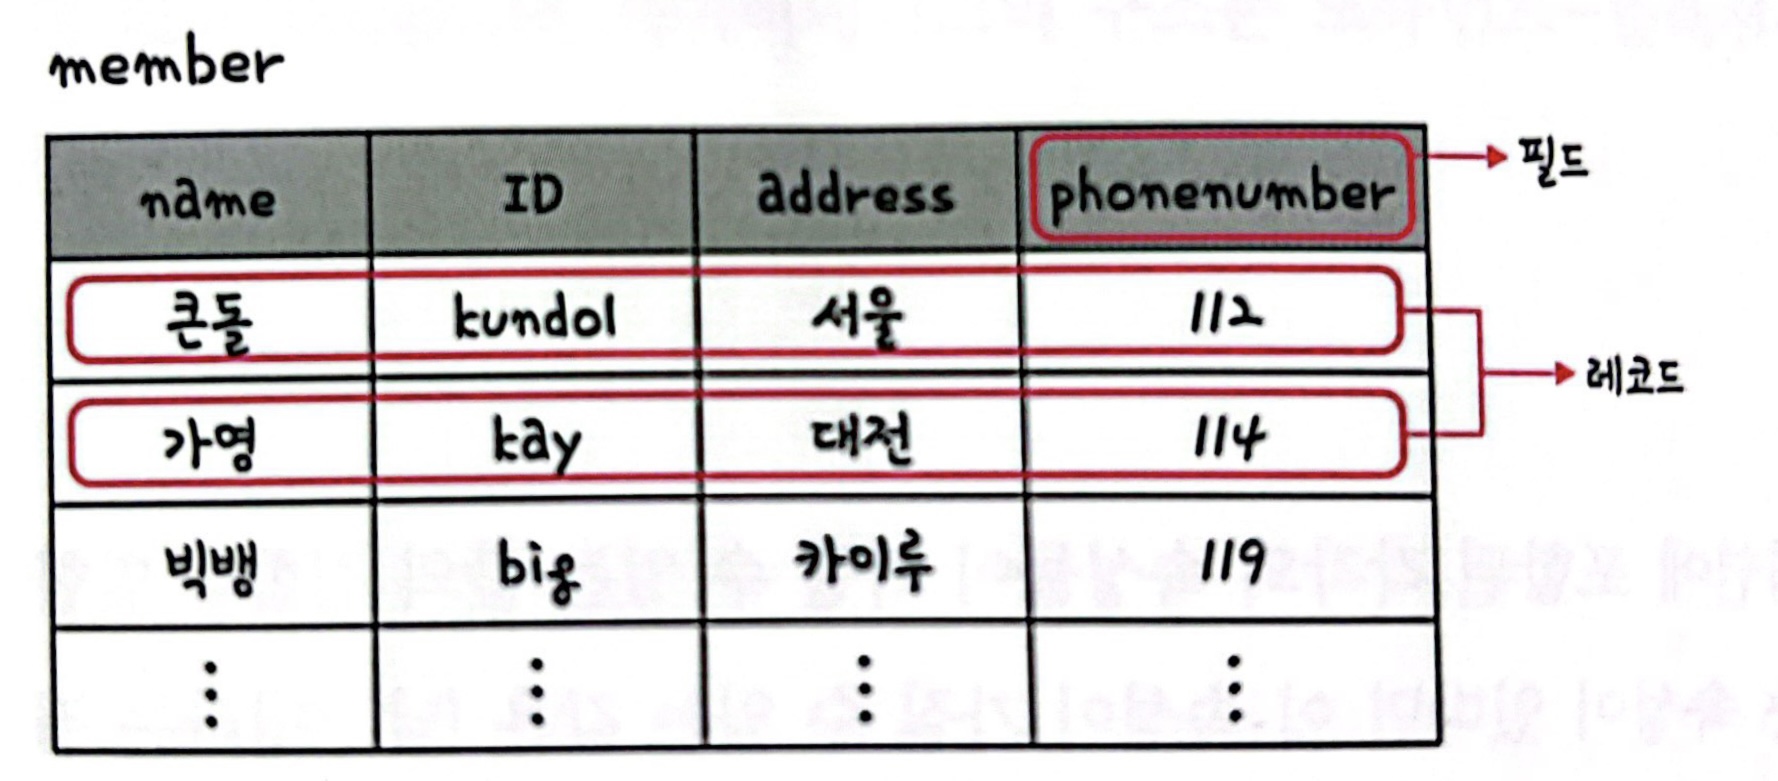 member
name ID address phonenumber 필드
큰돌 kundol 서울 112
레코드
가영 kay 대전 114
빅뱅 big 카이루 119